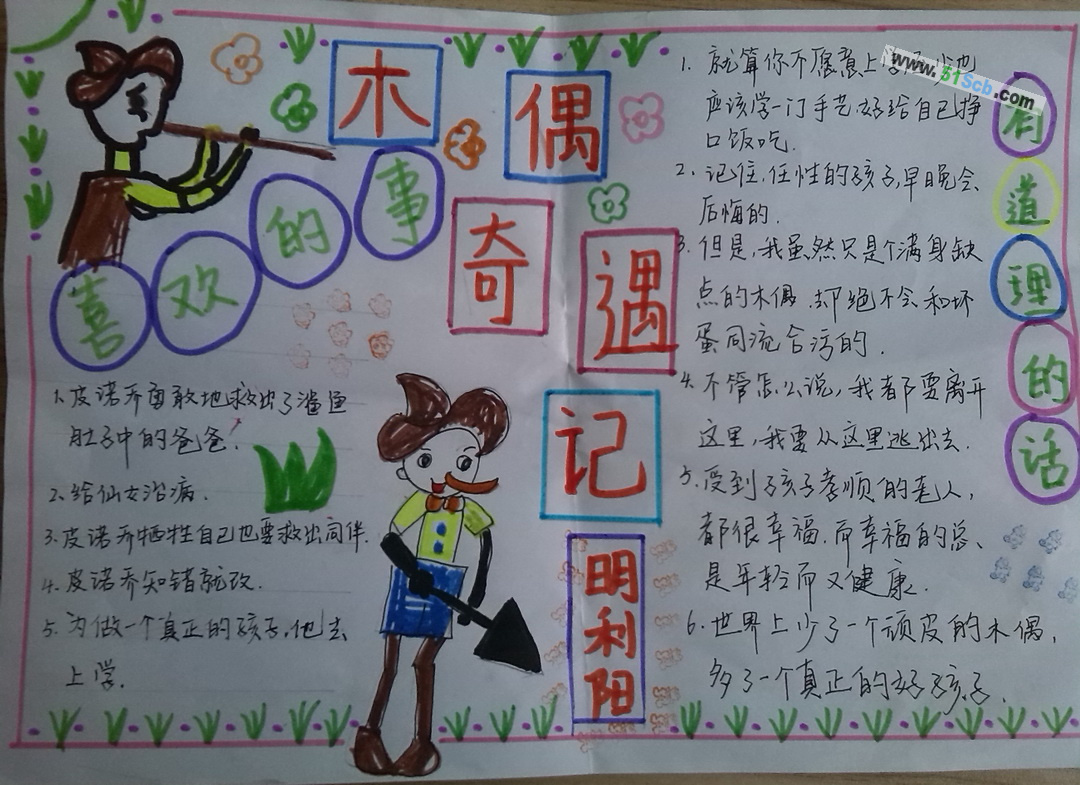 木偶奇遇记
明利阳
喜欢的事
1、皮诺乔勇敢地救出了鲨鱼
肚子中的爸爸！
2、给仙女治病．
3、皮诺乔牺牲自己也要救出同伴．
4、皮诺乔知错就改．
5、为做一个真正的孩子，他去
上学．
有道理的话
1、就算你不愿意上学，也
应该学一门手艺，好给自己挣
口饭吃．
2、记住，任性的孩子，早晚会
后悔的．
3、但是，我虽然只是个满身缺
点的木偶，却绝不会和坏
蛋同流合污的．
4、不管怎么说，我都要离开
这里，我要从这里逃出去．
5、受到孩子孝顺的老人，
都很幸福．而幸福的总、
是年轻而又健康．
6、世界上少了一个顽皮的木偶，
多了一个真正的好孩子．
www.51Scb.com